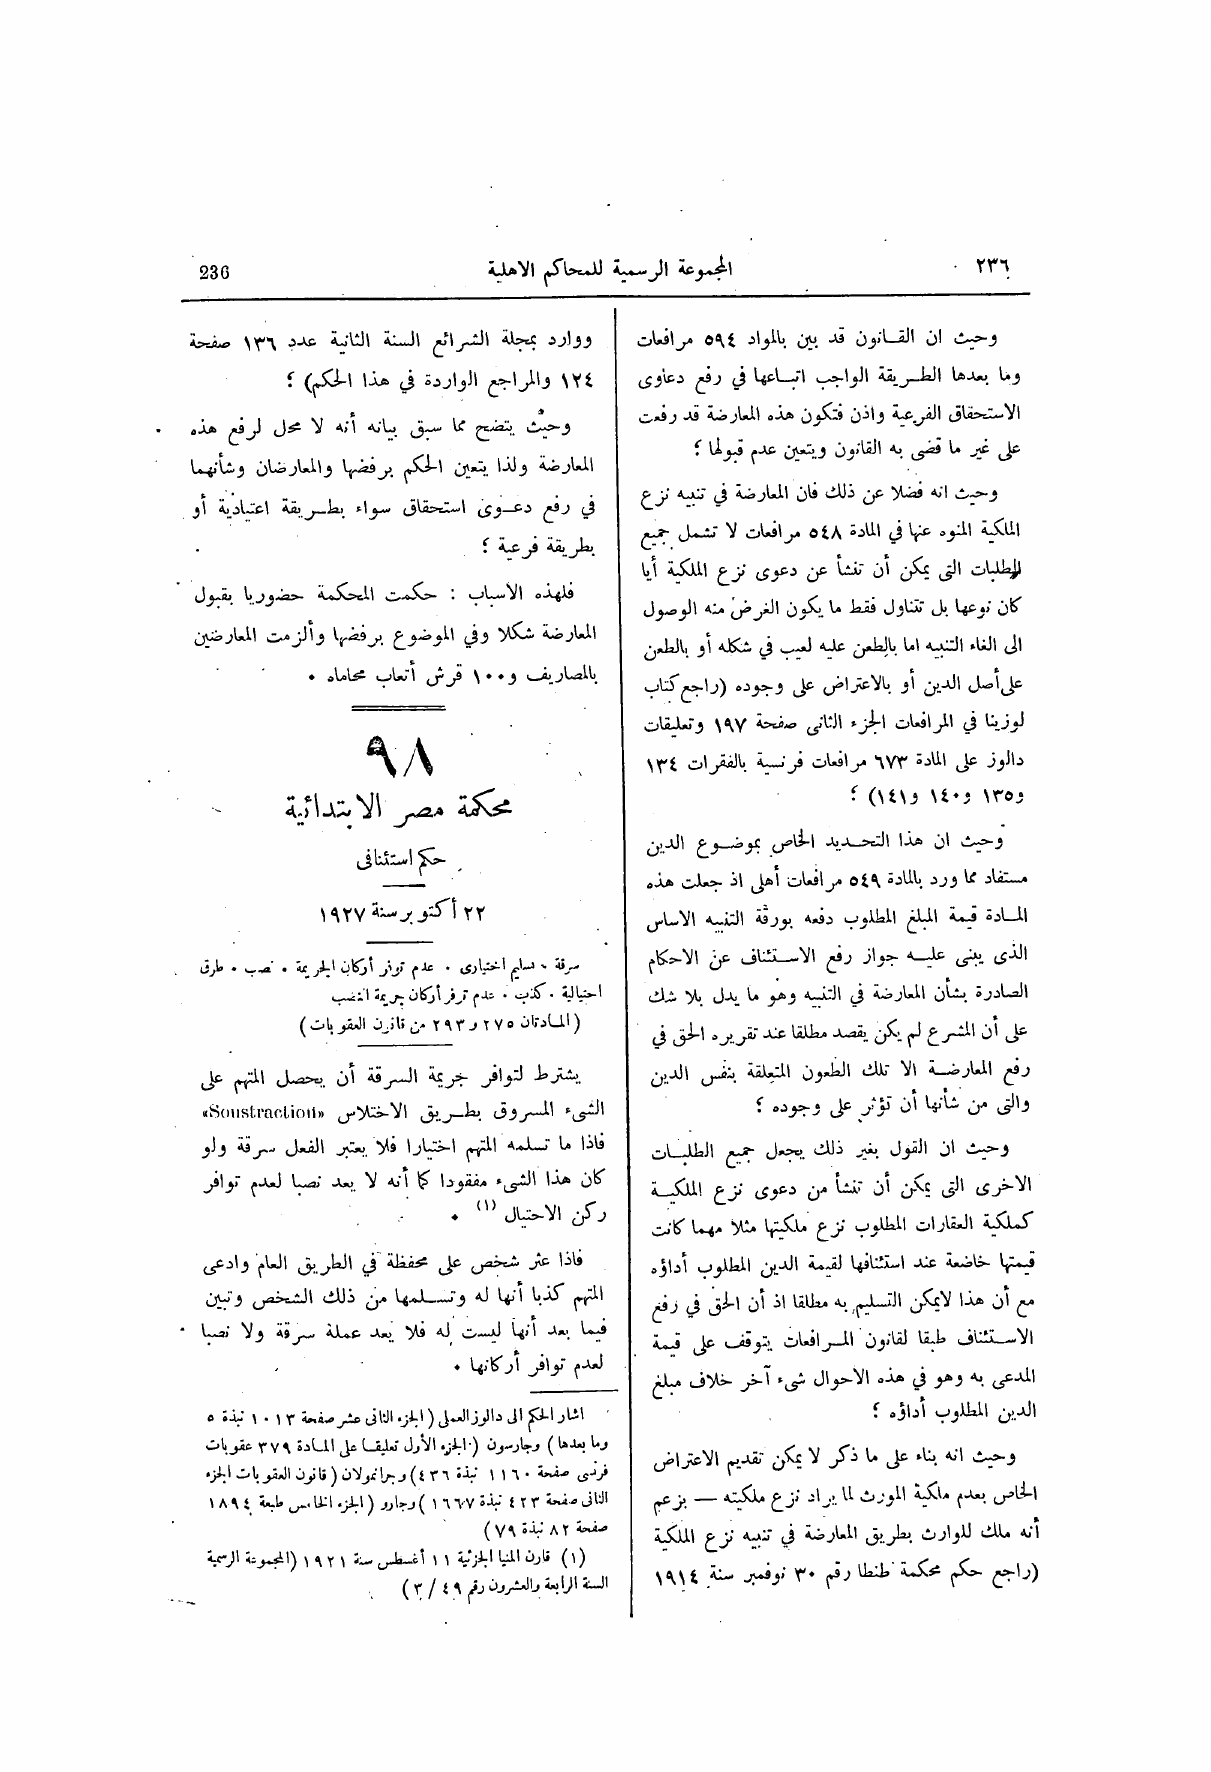 ٢٣٦
المجموعة الرسمية للمحاكم الاهلية
236
وحيث ان القانون قد بين بالمواد ٥٩٤ مرافعات
وما بعدها الطريقة الواجب اتباعها في رفع دعاوى
الاستحقاق الفرعية واذن فتكون هذه المعارضة قد رفعت
على غير ما قضى به القانون ويتعين عدم قبولها ؛
وحيث انه فضلا عن ذلك فان المعارضة في تنبيه نزع
الملكية المنوه عنها في المادة ٥٤٨ مرافعات لا تشمل جميع
الطلبات التى يمكن أن تنشأ عن دعوى نزع الملكية أيا
كان نوعها بل تتناول فقط ما يكون الغرض منه الوصول
الى الغاء التنبيه اما بالطعن عليه لعيب في شكله أو بالطعن
على أصل الدين أو بالاعتراض على وجوده (راجع كتاب
لوزينا في المرافعات الجزء الثانى صفحة ١٩٧ وتعليقات
دالوز على المادة ٦٧٣ مرافعات فرنسية بالفقرات ١٣٤
و١٣٥ و١٤٠ و١٤١) ؛
وحيث ان هذا التحديد الخاص بموضوع الدين
مستفاد مما ورد بالمادة ٥٤٩ مرافعات أهلى اذ جعلت هذه
المادة قيمة المبلغ المطلوب دفعه بورقة التنبيه الاساس
الذى يبنى عليه جواز رفع الاستئناف عن الاحكام
الصادرة بشأن المعارضة في التنبيه وهو ما يدل بلا شك
على أن المشرع لم يكن يقصد مطلقا عند تقريره الحق في
رفع المعارضة الا تلك الطعون المتعلقة بنفس الدين
والتى من شأنها أن تؤثر على وجوده ؛
وحيث ان القول بغير ذلك يجعل جميع الطلبات
الاخرى التى يمكن أن تنشأ من دعوى نزع الملكية
كملكية العقارات المطلوب نزع ملكيتها مثلا مهما كانت
قيمتها خاضعة عند استئنافها لقيمة الدين المطلوب أداؤه
مع أن هذا لايمكن التسليم به مطلقا اذ أن الحق في رفع
الاستئناف طبقا لقانون المرافعات يتوقف على قيمة
المدعى به وهو في هذه الاحوال شىء آخر خلاف مبلغ
الدين المطلوب أداؤه ؛
وحيث انه بناء على ما ذكر لا يمكن تقديم الاعتراض
الخاص بعدم ملكية المورث لما يراد نزع ملكيته — بزعم
أنه ملك للوارث بطريق المعارضة في تنبيه نزع الملكية
(راجع حكم محكمة طنطا رقم ٣٠ نوفمبر سنة ١٩١٤
ووارد بمجلة الشرائع السنة الثانية عدد ١٣٦ صفحة
١٢٤ والمراجع الواردة في هذا الحكم) ؛
وحيث يتضح مما سبق بيانه أنه لا محل لرفع هذه
المعارضة ولذا يتعين الحكم برفضها والمعارضان وشأنهما
في رفع دعوى استحقاق سواء بطريقة اعتيادية أو
بطريقة فرعية ؛
فلهذه الاسباب : حكمت المحكمة حضوريا بقبول
المعارضة شكلا وفي الموضوع برفضها وألزمت المعارضين
بالمصاريف و١٠٠ قرش أتعاب محاماه .
٩٨
محكمة مصر الابتدائية
حكم استئنافى
٢٢ أكتوبر سنة ١٩٢٧
سرقة . تسليم اختيارى . عدم توفر أركان الجريمة . نصب . طرق
احتيالية . كذب . عدم توفر أركان جريمة النصب
(المادتان ٢٧٥ و٢٩٣ من قانون العقوبات)
يشترط لتوافر جريمة السرقة أن يحصل المتهم على
الشىء المسروق بطريق الاختلاس «Soustraction»
فاذا ما تسلمه المتهم اختيارا فلا يعتبر الفعل سرقة ولو
كان هذا الشىء مفقودا كما أنه لا يعد نصبا لعدم توافر
ركن الاحتيال (١) .
فاذا عثر شخص على محفظة في الطريق العام وادعى
المتهم كذبا أنها له وتسلمها من ذلك الشخص وتبين
فيما بعد أنها ليست له فلا يعد عمله سرقة ولا نصبا
لعدم توافر أركانها .
اشار الحكم الى دالوز العملى (الجزء الثانى عشر صفحة ١٠١٣ نبذة ٥
وما بعدها) وجارسون (الجزء الأول تعليقا على المادة ٣٧٩ عقوبات
فرنسى صفحة ١١٦٠ نبذة ٤٣٦) وجرانمولان (قانون العقوبات الجزء
الثانى صفحة ٤٢٣ نبذة ١٦٦٧) وجارو (الجزء الخامس طبعة ١٨٩٤
صفحة ٨٢ نبذة ٧٩)
(١) قارن المنيا الجزئية ١١ أغسطس سنة ١٩٢١ (المجموعة الرسمية
السنة الرابعة والعشرون رقم ٤٩ / ٣)